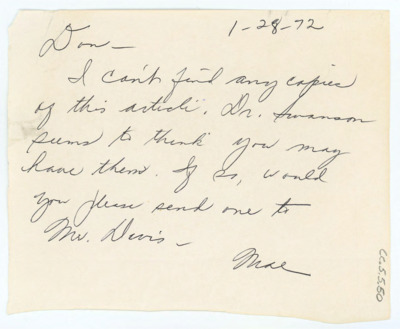 1-28-72
Don—
I can't find any copies
of this article. Dr. Swanson
seems to think you may
have them. If so, would
you please send one to
Mr. Davis—
Mae